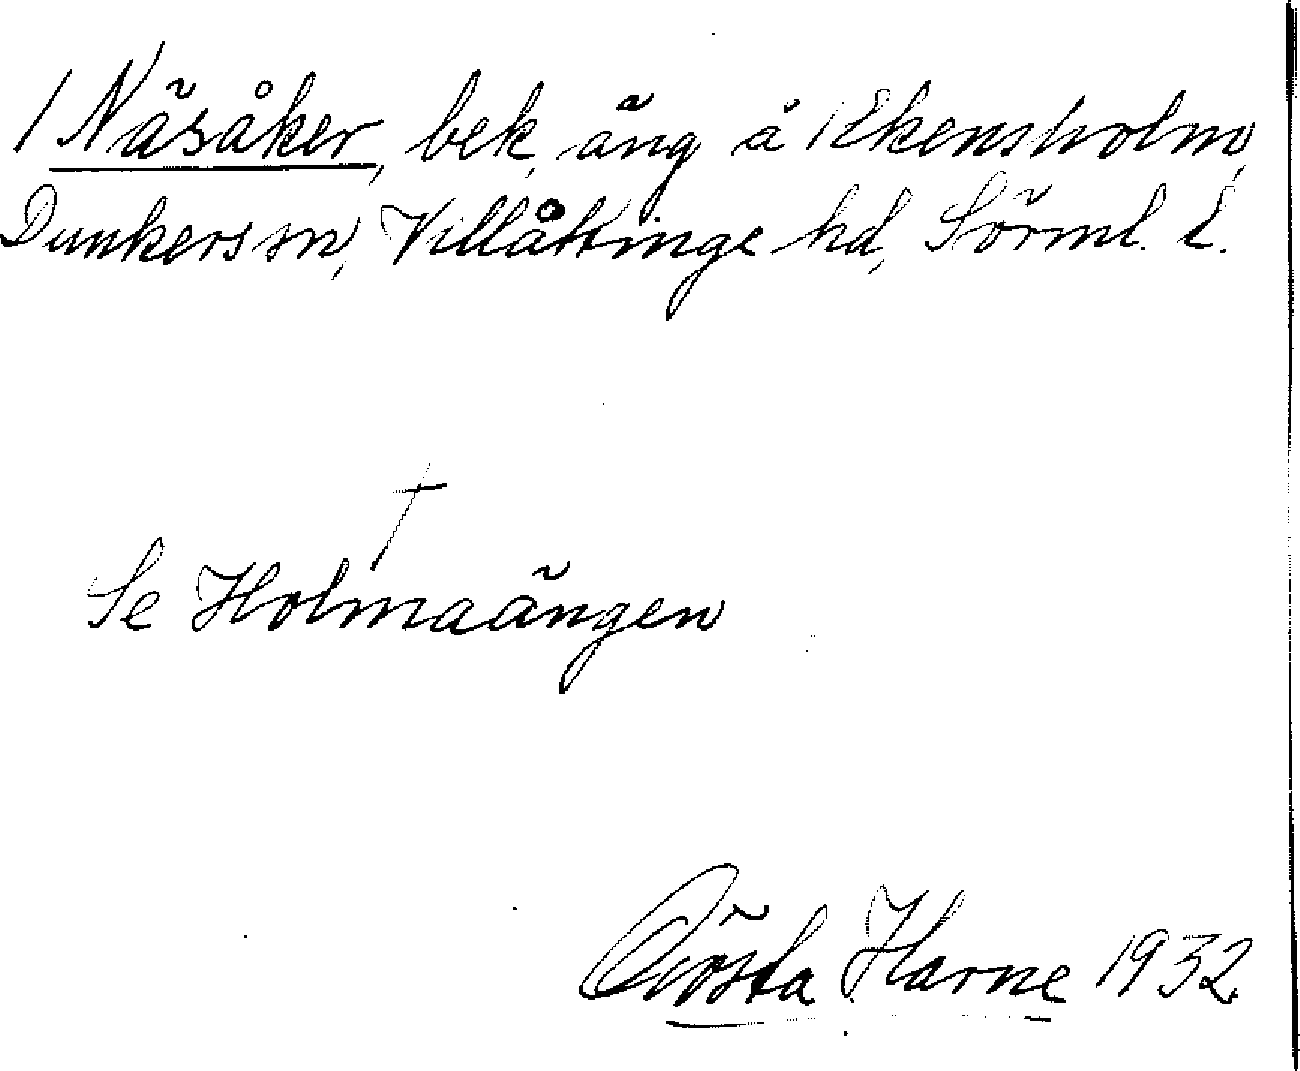 / Näsåker, bek. äng å Ekensholm,
Dunkers sn, Villåttinge hd, Sörml. l.
†
Se Holmaängen
Gösta Harne 1932